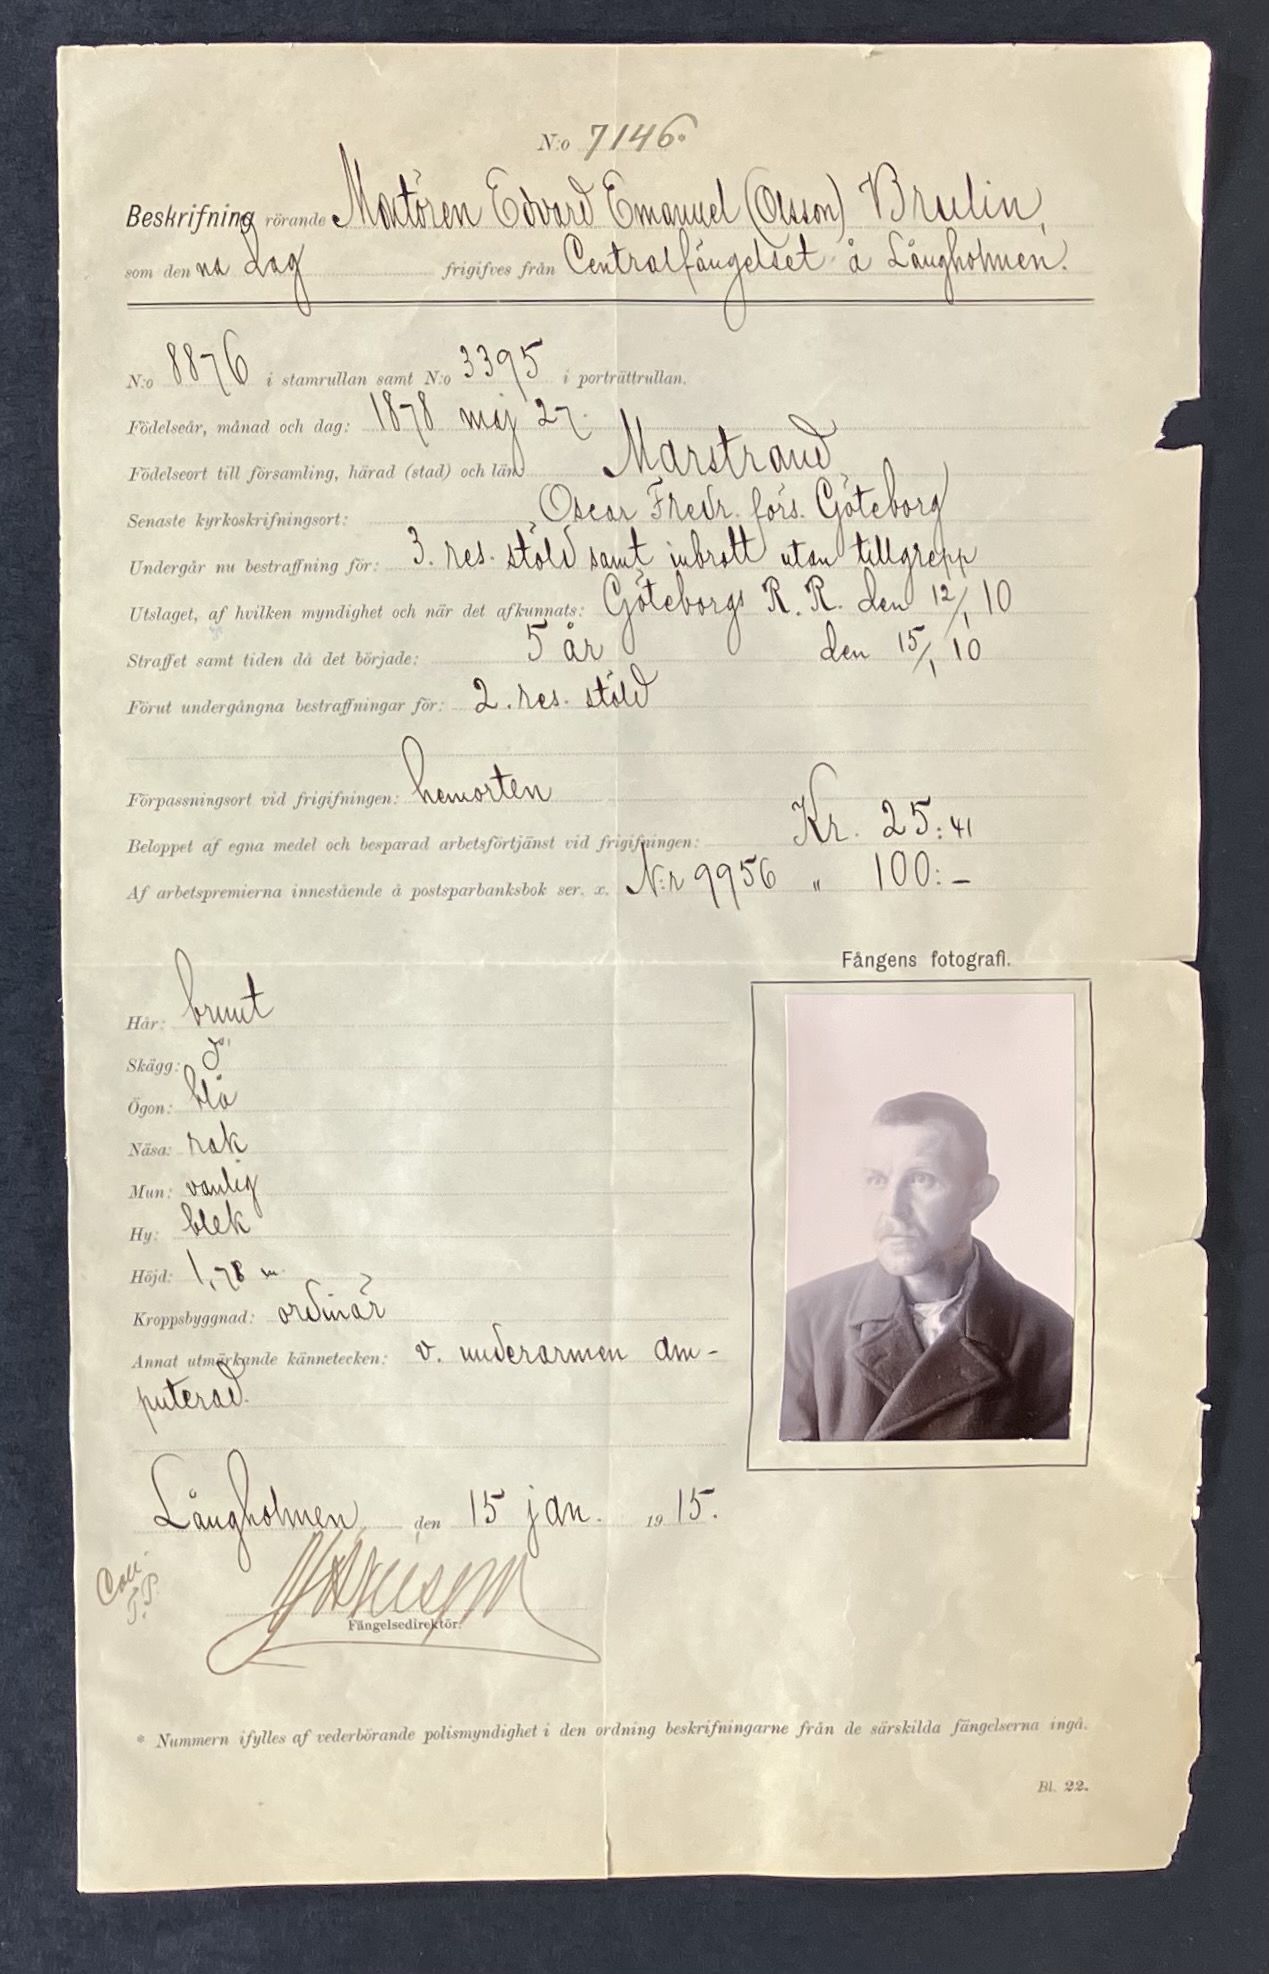 N:o 7146*
Beskrifning rörande Montören Edvard Emanuel (Olsson) Brulin,
som den na dag frigifves från Centralfängelset å Långholmen.
N:o 8876 i stamrullan samt N:o 3395 i porträttrullan.
Födelseår, månad och dag: 1878 maj 27.
Födelseort till församling, härad (stad) och län Marstrand
Senaste kyrkoskrifningsort: Oscar Fredr. förs. Göteborg
Undergår nu bestraffning för: 3. res. stöld samt inbrott utan tillgrepp
Utslaget, af hvilken myndighet och när det afkunnats: Göteborgs R. R. den 12/1 10
Straffet samt tiden då det började: 5 år den 15/1 10
Förut undergångna bestraffningar för: 2. res. stöld
Förpassningsort vid frigifningen: hemorten
Beloppet af egna medel och besparad arbetsförtjänst vid frigifningen: Kr. 25:41
Af arbetspremierna innestående å postsparbanksbok ser. x. N:r 9956 " 100:–
Fångens fotografi.
Hår: brunt
Skägg: d:o
Ögon: blå
Näsa: rak
Mun: vanlig
Hy: blek
Höjd: 1,78 m
Kroppsbyggnad: ordinär
Annat utmärkande kännetecken: v. underarmen am-
puterad.
Långholmen den 15 jan. 1915.
Fängelsedirektör.
* Nummern ifylles af vederbörande polismyndighet i den ordning beskrifningarne från de särskilda fängelserna ingå.
Bl. 22.